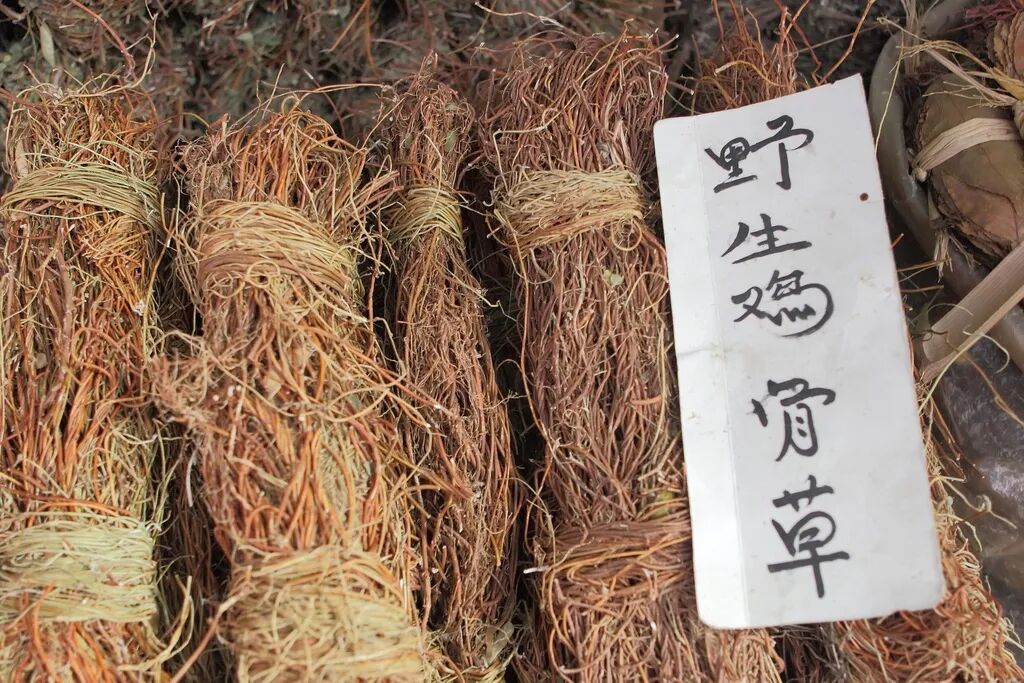 野生鸡骨草